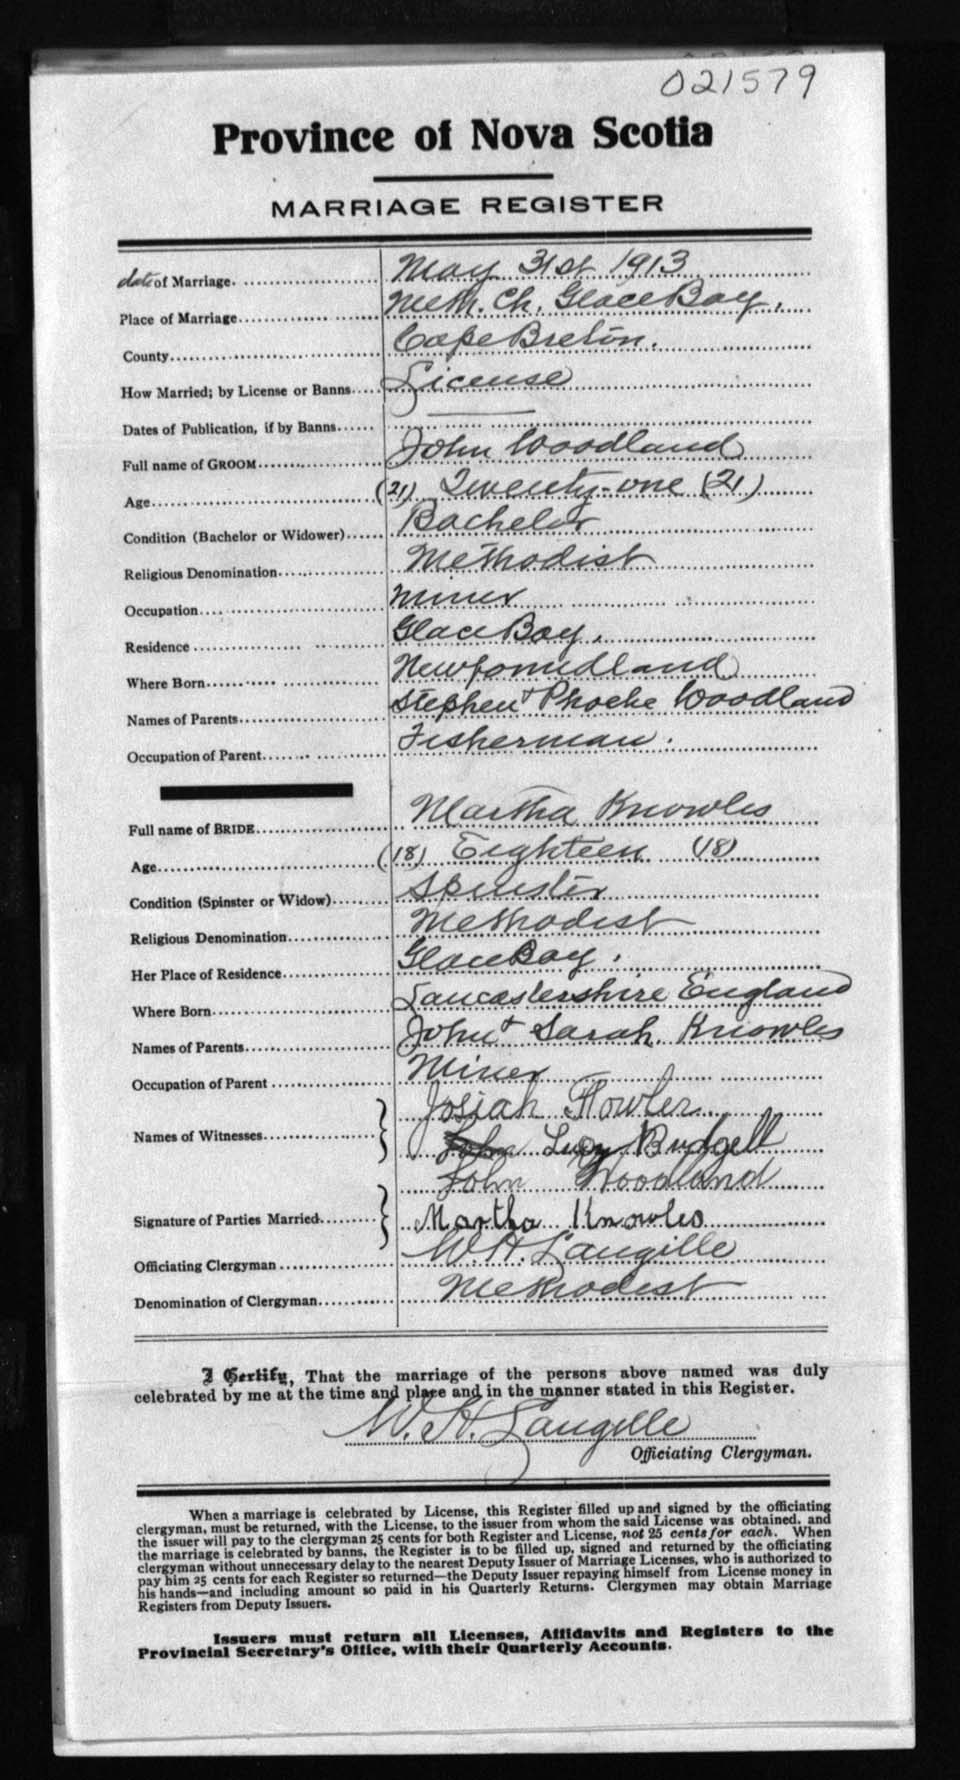 021579
Province of Nova Scotia
MARRIAGE REGISTER
date of Marriage. May 31st 1913
Place of Marriage Meth. Ch. Glace Bay.
County Cape Breton.
How Married; by License or Banns License
Dates of Publication, if by Banns
Full name of GROOM John Woodland
Age (21) Twenty-one (21)
Condition (Bachelor or Widower) Bachelor
Religious Denomination Methodist
Occupation Miner
Residence Glace Bay.
Where Born Newfoundland
Names of Parents Stephen + Phoebe Woodland
Occupation of Parent Fisherman.
Full name of BRIDE Martha Knowles
Age (18) Eighteen (18)
Condition (Spinster or Widow) Spinster
Religious Denomination Methodist
Her Place of Residence Glace Bay.
Where Born Lancastershire England
Names of Parents John + Sarah Knowles
Occupation of Parent Miner
Josiah Fowler
Names of Witnesses John Lucy Budgell
John Woodland
Signature of Parties Married Martha Knowles
Officiating Clergyman W. H. Langille
Denomination of Clergyman Methodist
I Certify, That the marriage of the persons above named was duly
celebrated by me at the time and place and in the manner stated in this Register.
W. H. Langille
Officiating Clergyman.
When a marriage is celebrated by License, this Register filled up and signed by the officiating
clergyman, must be returned, with the License, to the issuer from whom the said License was obtained, and
the issuer will pay to the clergyman 25 cents for both Register and License, not 25 cents for each. When
the marriage is celebrated by banns, the Register is to be filled up, signed and returned by the officiating
clergyman without unnecessary delay to the nearest Deputy Issuer of Marriage Licenses, who is authorized to
pay him 25 cents for each Register so returned—the Deputy Issuer repaying himself from License money in
his hands—and including amount so paid in his Quarterly Returns. Clergymen may obtain Marriage
Registers from Deputy Issuers.
Issuers must return all Licenses, Affidavits and Registers to the
Provincial Secretary's Office, with their Quarterly Accounts.